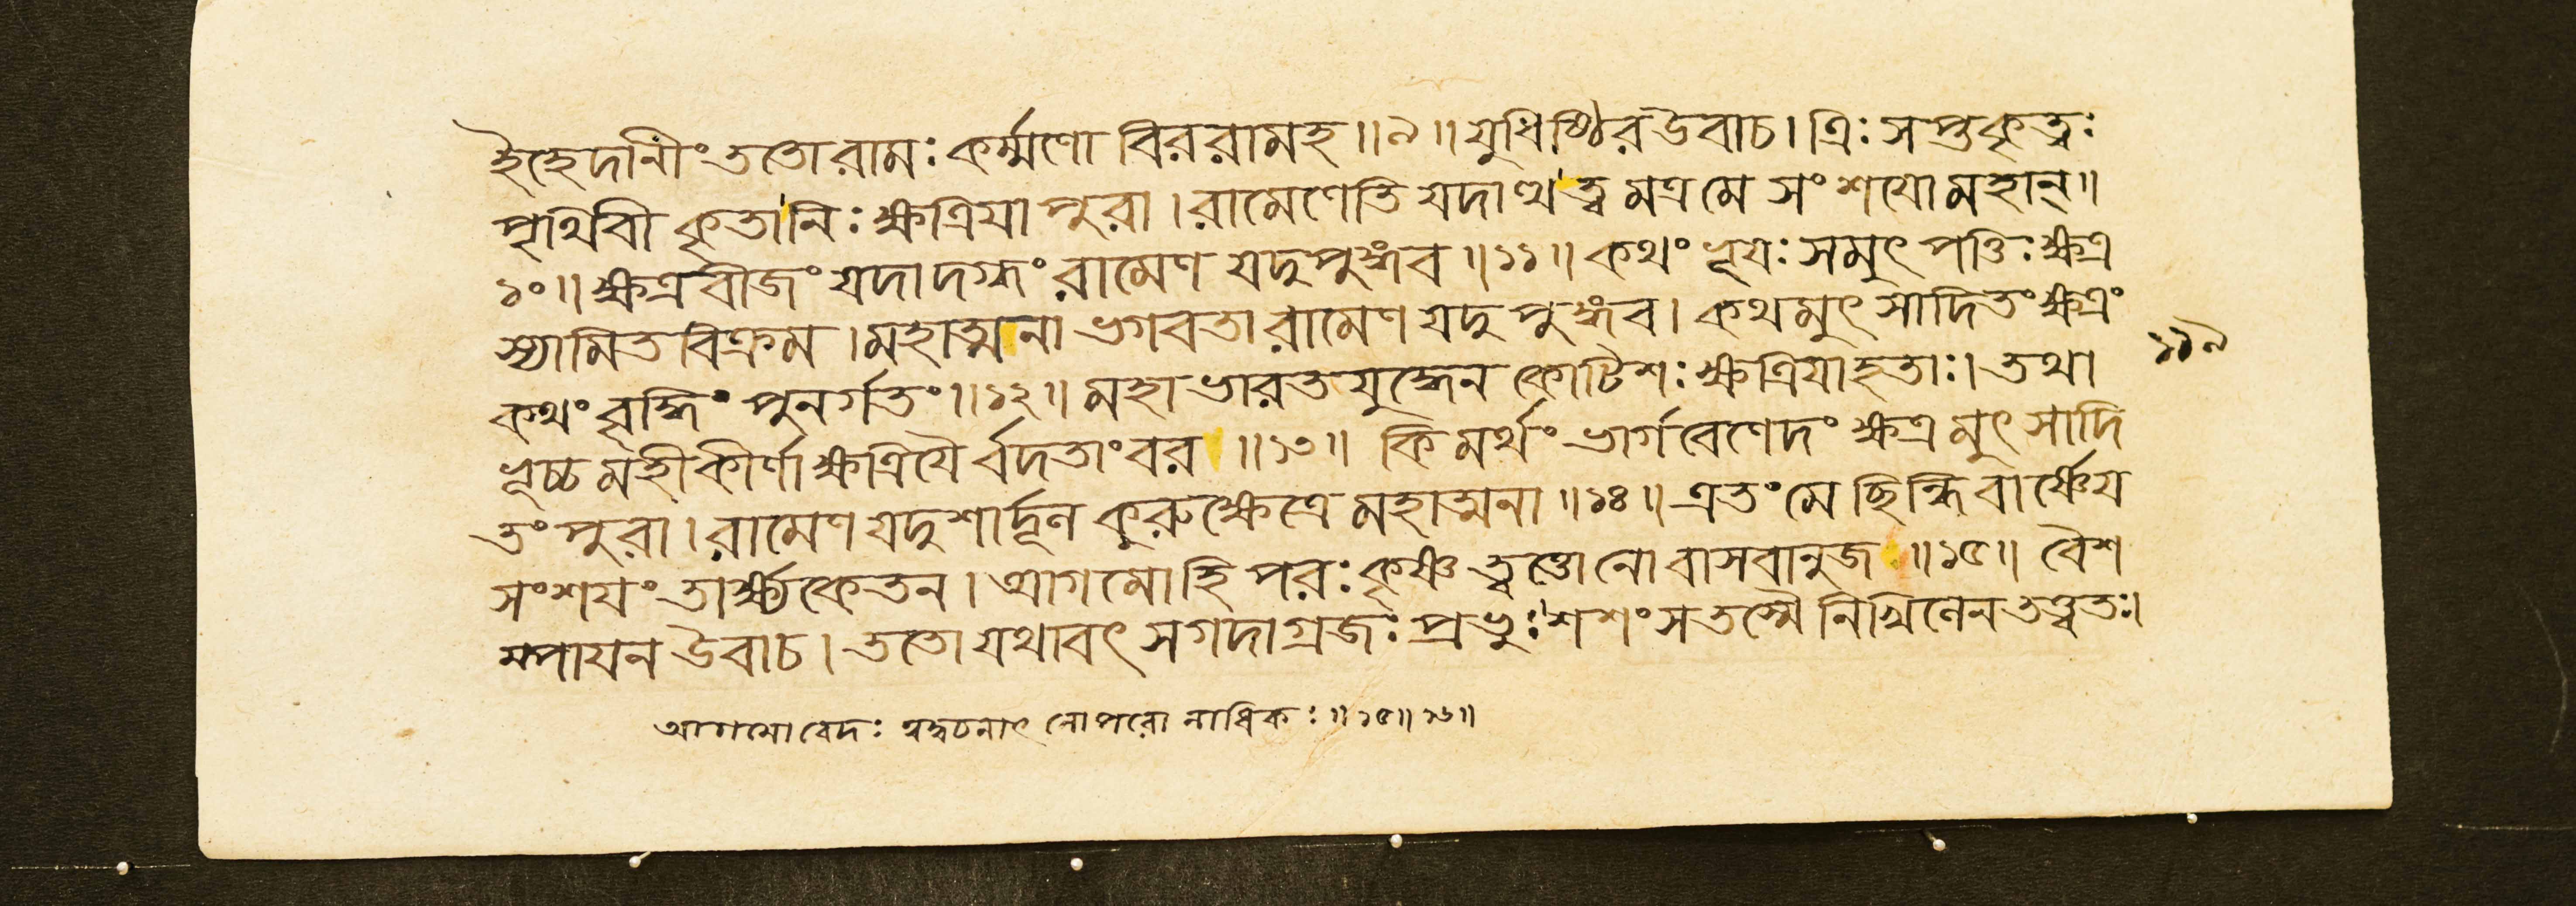 ইহেদানীং ততো রামঃ কর্ম্মণো বিররামহ ॥ ৯ ॥ যুধিষ্ঠির উবাচ। ত্রিঃ সপ্তকৃত্বঃ
পৃথিবী কৃতা নিঃ ক্ষত্রিয়া পুরা। রামেণেতি যদাত্থ ত্বমত্র মে সংশয়ো মহান্॥
১০॥ ক্ষত্রবীজং যদা দগ্ধং রামেণ যদুপুঙ্গব ॥ ১১ ॥ কথং ভূয়ঃ সমুৎপত্তিঃ ক্ষত্র
স্যামিতবিক্রম। মহাত্মনা ভগবতা রামেণ যদুপুঙ্গব। কথমুৎসাদিতং ক্ষত্রং
কথং বৃদ্ধিং পুনর্গতং ॥ ১২ ॥ মহাভারতযুদ্ধেন কোটিশঃ ক্ষত্রিয়া হতাঃ। তথা
ভূচ্চ মহী কীর্ণা ক্ষত্রিয়ৈর্বদতাং বর ॥ ১৩ ॥ কিমর্থং ভার্গবেণেদং ক্ষত্রমুৎসাদি
তং পুরা। রামেণ যদুশার্দ্দূল কুরুক্ষেত্রে মহাত্মনা ॥ ১৪ ॥ এতং মে ছিন্ধি বার্ষ্ণেয়
সংশয়ং তার্ক্ষ্যকেতন। আগমো হি পরঃ কৃষ্ণ ত্বত্তো নো বাসবানুজ ॥ ১৫ ॥ বৈশ
ম্পায়ন উবাচ। ততো যথাবৎ স গদাগ্রজঃ প্রভুঃ শশংস তস্মৈ নিখিলেন তত্ত্বতঃ।
১১৯
আগমো বেদঃ ত্বদ্বচনাৎ নো পরো নাধিকঃ ॥ ১৫ ॥ ১৬ ॥